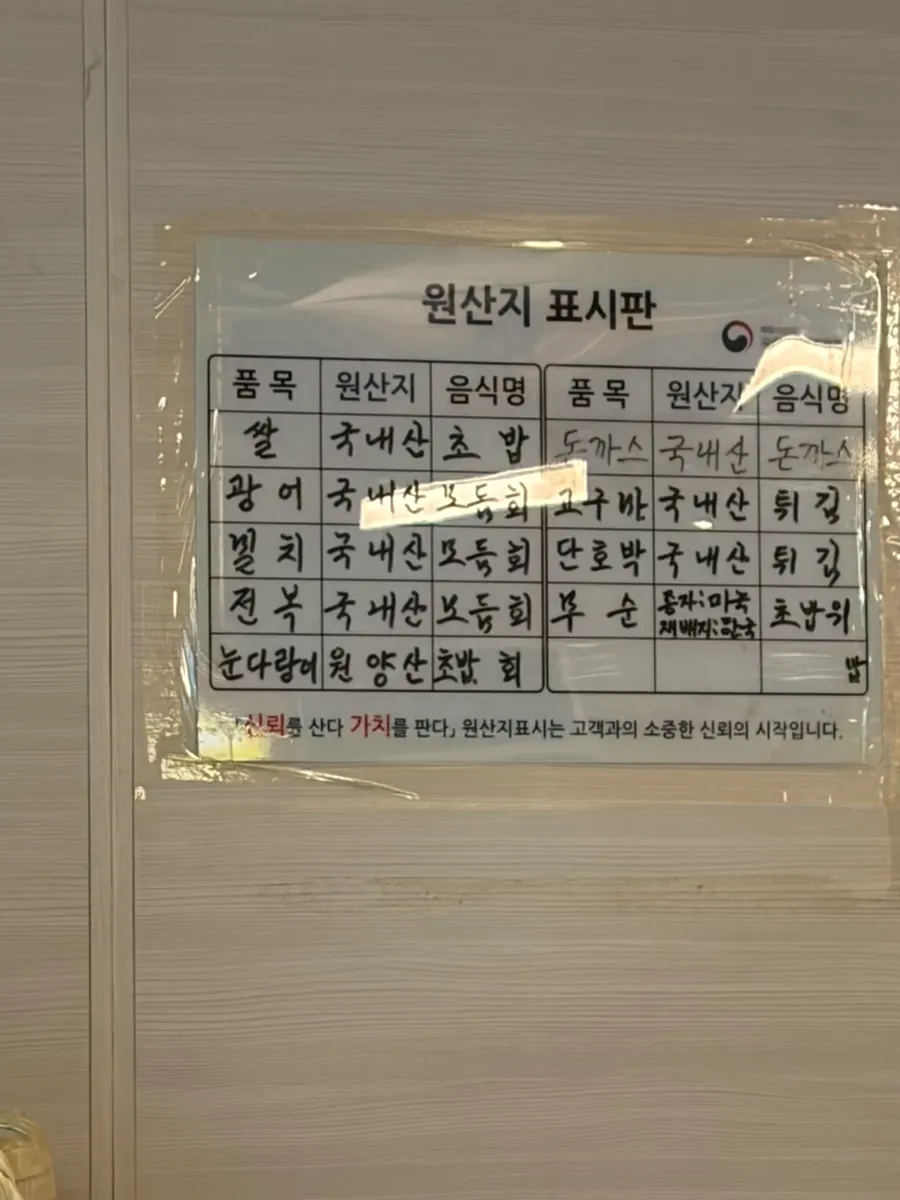 원산지 표시판
품목 원산지 음식명 품목 원산지 음식명
쌀 국내산 초밥 돈까스 국내산 돈까스
광어 국내산 모듬회 고구마 국내산 튀김
밀치 국내산 모듬회 단호박 국내산 튀김
전복 국내산 모듬회 무순 종자:미국 재배지:한국 초밥위
눈다랑어 원양산 초밥 회 밥
「신뢰를 산다 가치를 판다」 원산지표시는 고객과의 소중한 신뢰의 시작입니다.